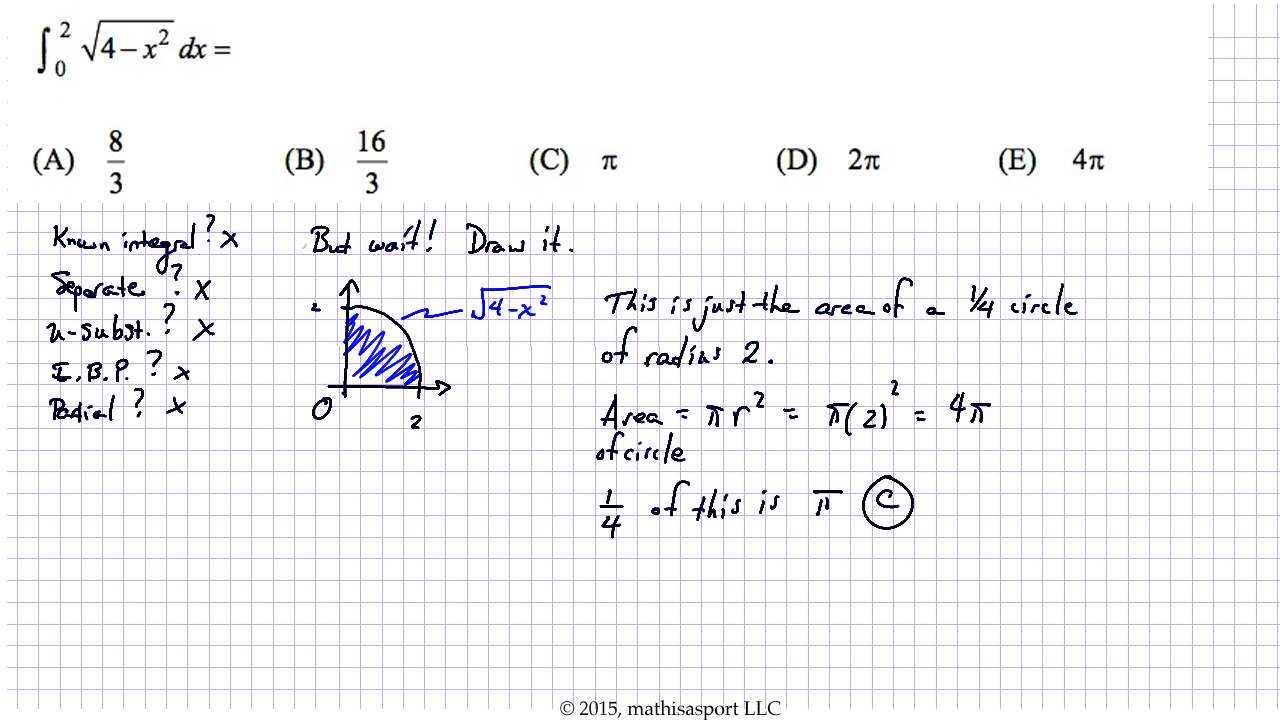 ∫₀² √(4−x²) dx =
(A) 8/3 (B) 16/3 (C) π (D) 2π (E) 4π
Known integral? x
Separate? x
u-subst.? x
I.B.P.? x
Partial? x
But wait! Draw it.
2
√(4-x²)
0
2
This is just the area of a 1/4 circle
of radius 2.
Area = πr² = π(2)² = 4π
of circle
1/4 of this is π (C)
© 2015, mathisasport LLC